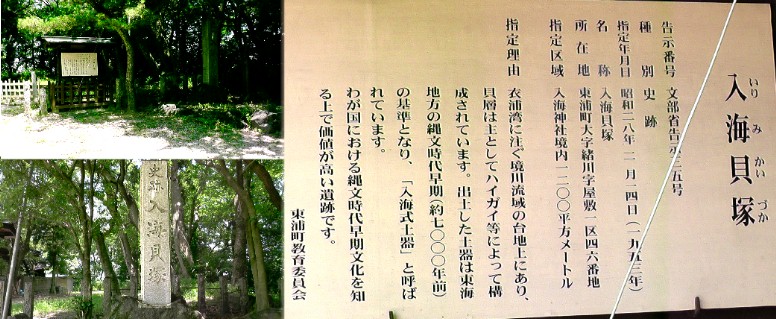 入海貝塚
いりみかいづか
告示番号 文部省告示三五号
種別 史跡
指定年月日 昭和二八年一一月一四日(一九五三年)
名称 入海貝塚
所在地 東浦町大字緒川字屋敷一区四六番地
指定区域 入海神社境内一二〇〇平方メートル
指定理由 衣浦湾に注ぐ境川流域の台地上にあり、
貝層は主としてハイガイ等によって構
成されています。出土した土器は東海
地方の縄文時代早期(約七〇〇〇年前)
の基準となり、「入海式土器」と呼ば
れています。
わが国における縄文時代早期文化を知
る上で価値が高い遺跡です。
東浦町教育委員会
史跡 入海貝塚